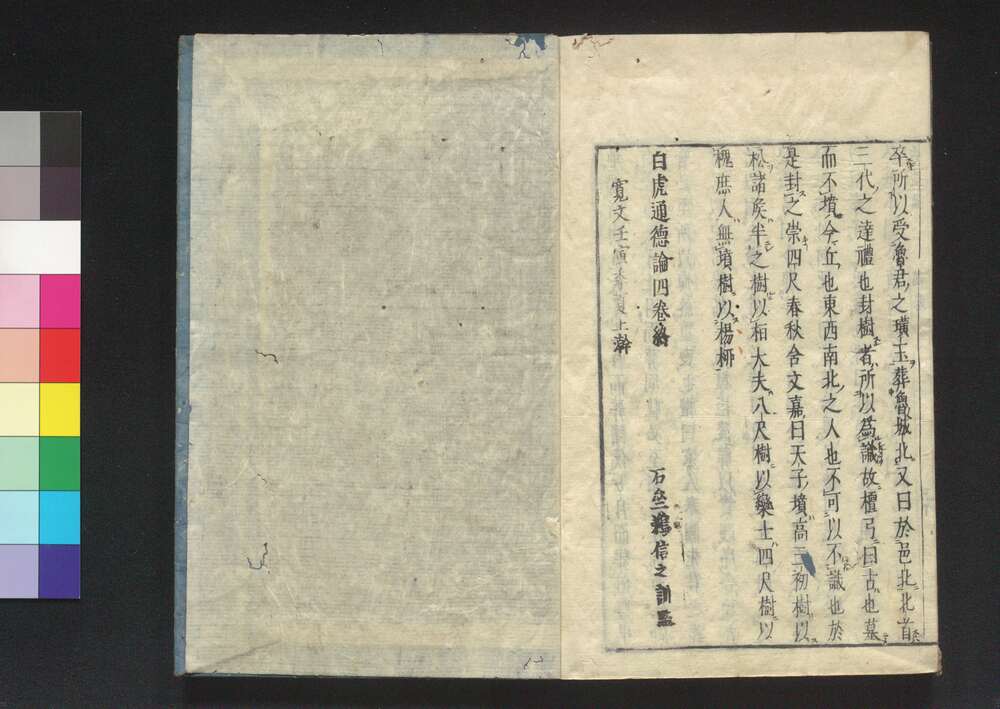 卒所以受魯君之璜玉葬魯城北又曰於邑北北首
三代之達禮也封樹者所以為識故檀弓曰古也墓
而不墳今丘也東西南北之人也不可以不識也於
是封之崇四尺春秋含文嘉曰天子墳高三仞樹以
松諸侯半之樹以栢大夫八尺樹以欒士四尺樹以
槐庶人無墳樹以楊栁
白虎通德論四卷終 石 鵜信之訓點
寬文壬寅 夏上澣